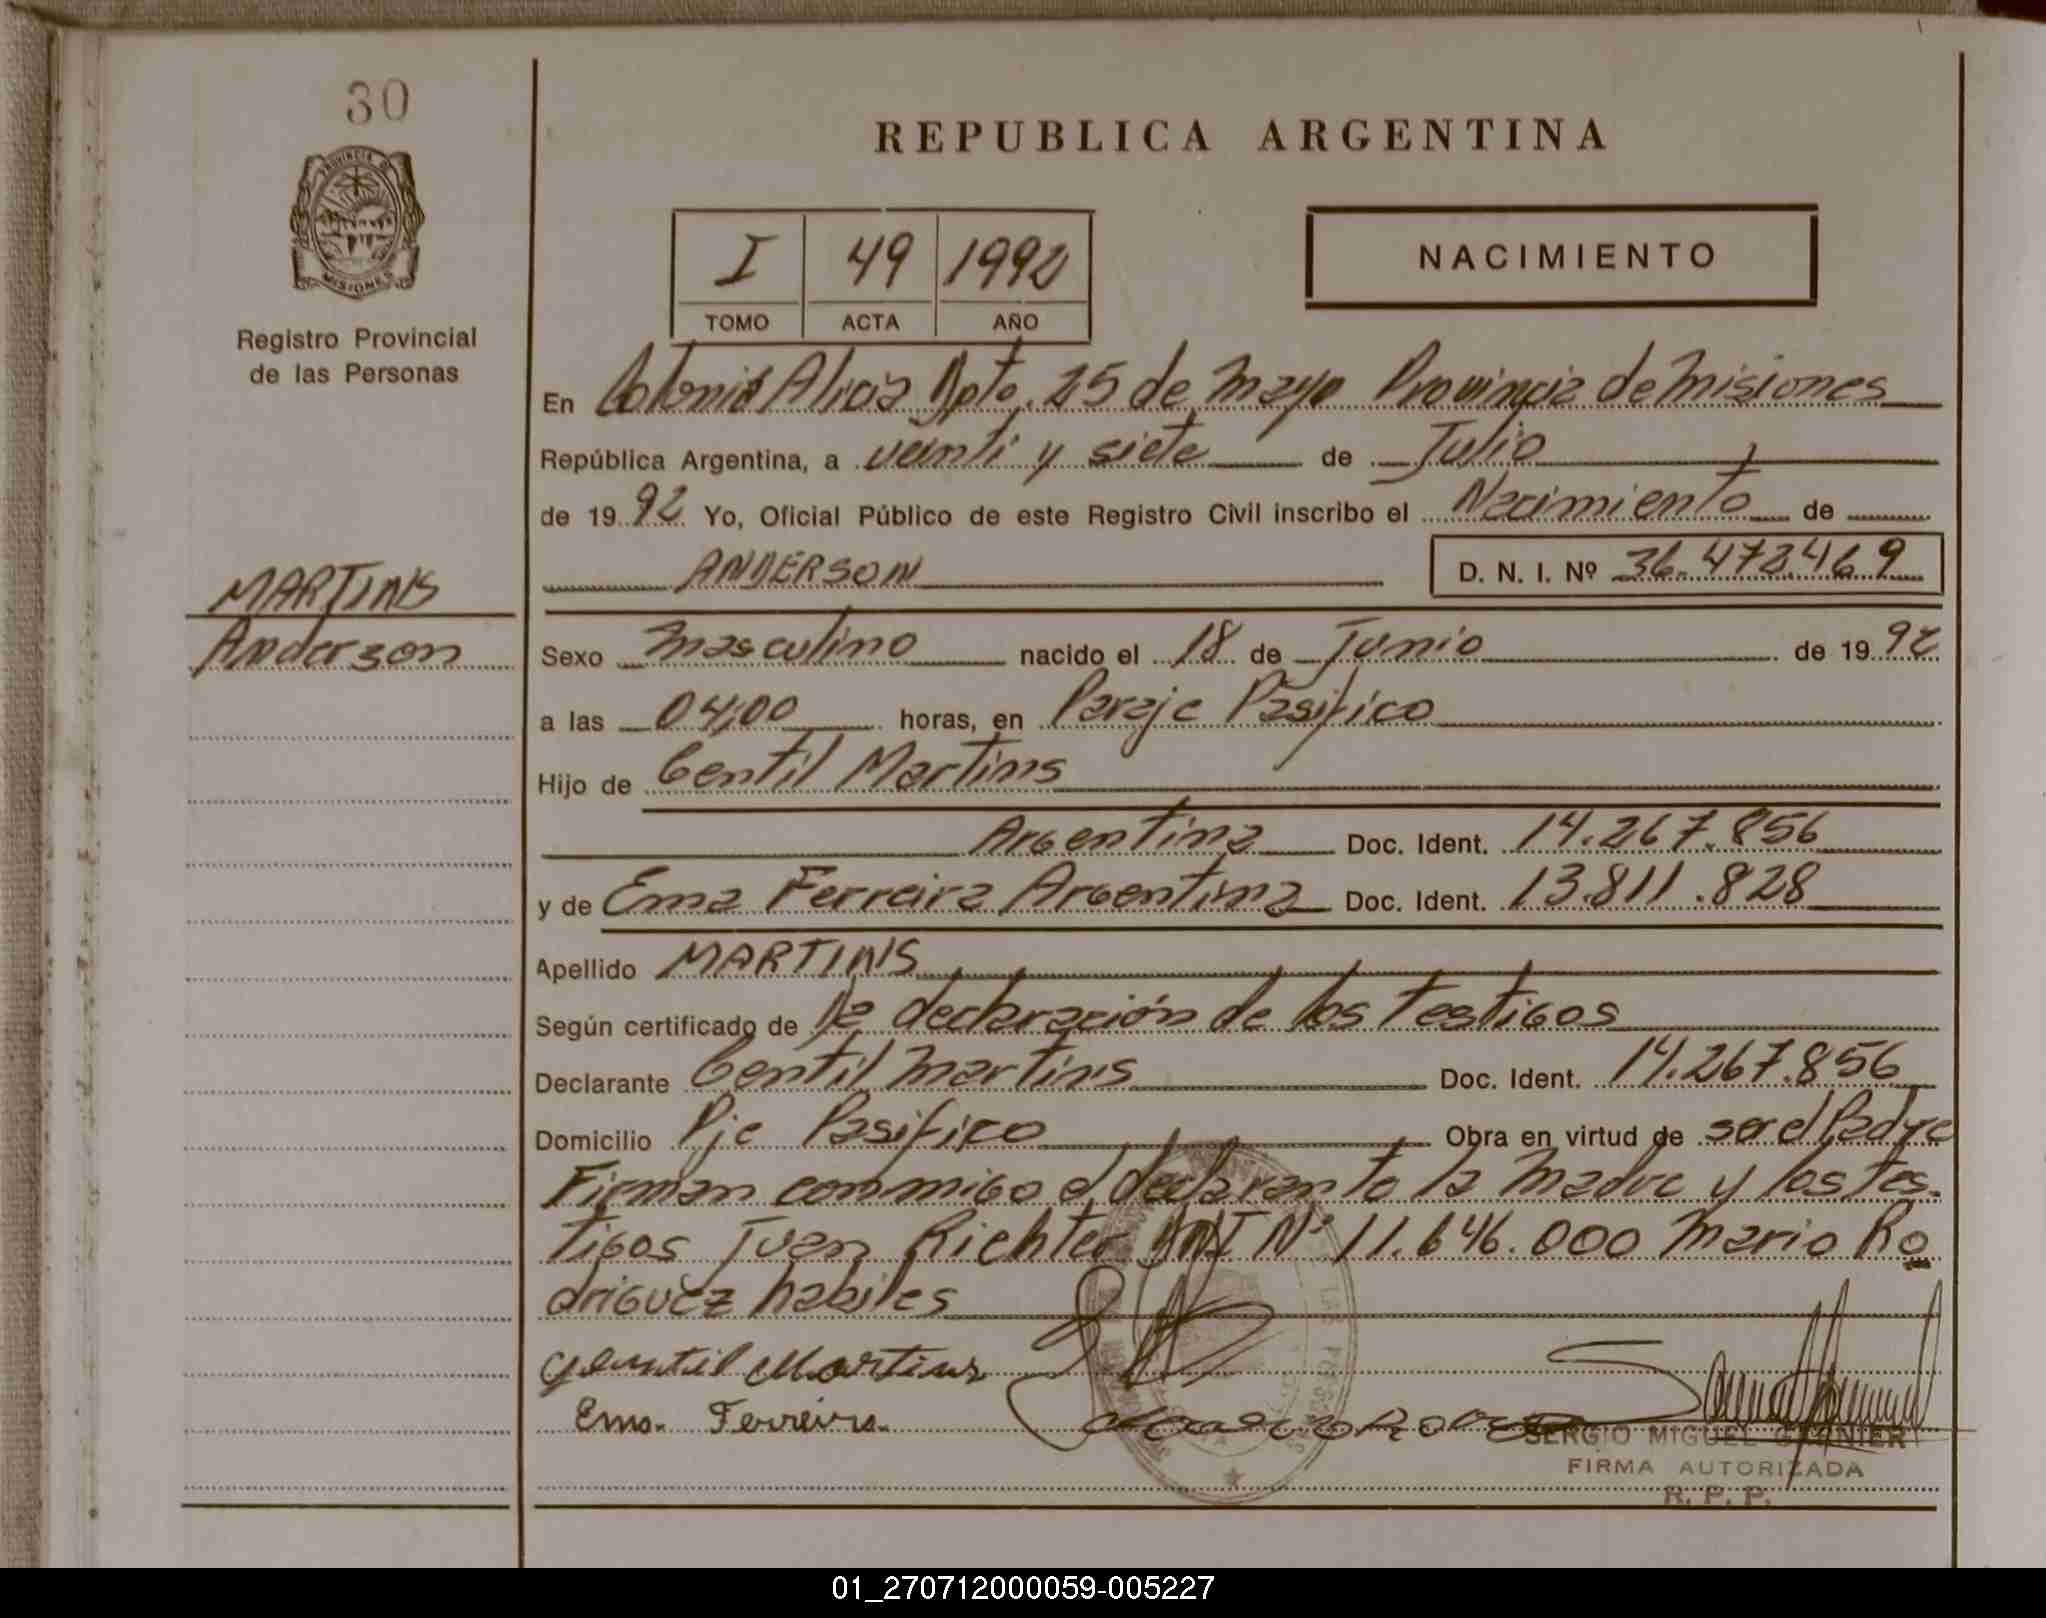 30
PROVINCIA DE
MISIONES
Registro Provincial
de las Personas
MARTINS
Anderson
REPUBLICA ARGENTINA
I 49 1992
TOMO ACTA AÑO
NACIMIENTO
En Colonia Alicia Dpto. 25 de Mayo Provincia de Misiones
República Argentina, a veinti y siete de Julio
de 1992 Yo, Oficial Público de este Registro Civil inscribo el Nacimiento de
ANDERSON D. N. I. Nº 36.472.469
Sexo Masculino nacido el 18 de Junio de 1992
a las 04,00 horas, en Paraje Pasifico
Hijo de Gentil Martins
Argentina Doc. Ident. 14.267.856
y de Ema Ferreira Argentina Doc. Ident. 13.811.828
Apellido MARTINS
Según certificado de la declaración de los testigos
Declarante Gentil Martins Doc. Ident. 14.267.856
Domicilio Pje Pasifico Obra en virtud de ser el Padre
Firman conmigo el declarante la Madre y los tes-
tigos Juan Richter DNI Nº 11.646.000 Mario Ro
driguez habiles
Gentil Martins
Ema Ferreira
SERGIO MIGUEL
FIRMA AUTORIZADA
R. P. P.
01_270712000059-005227